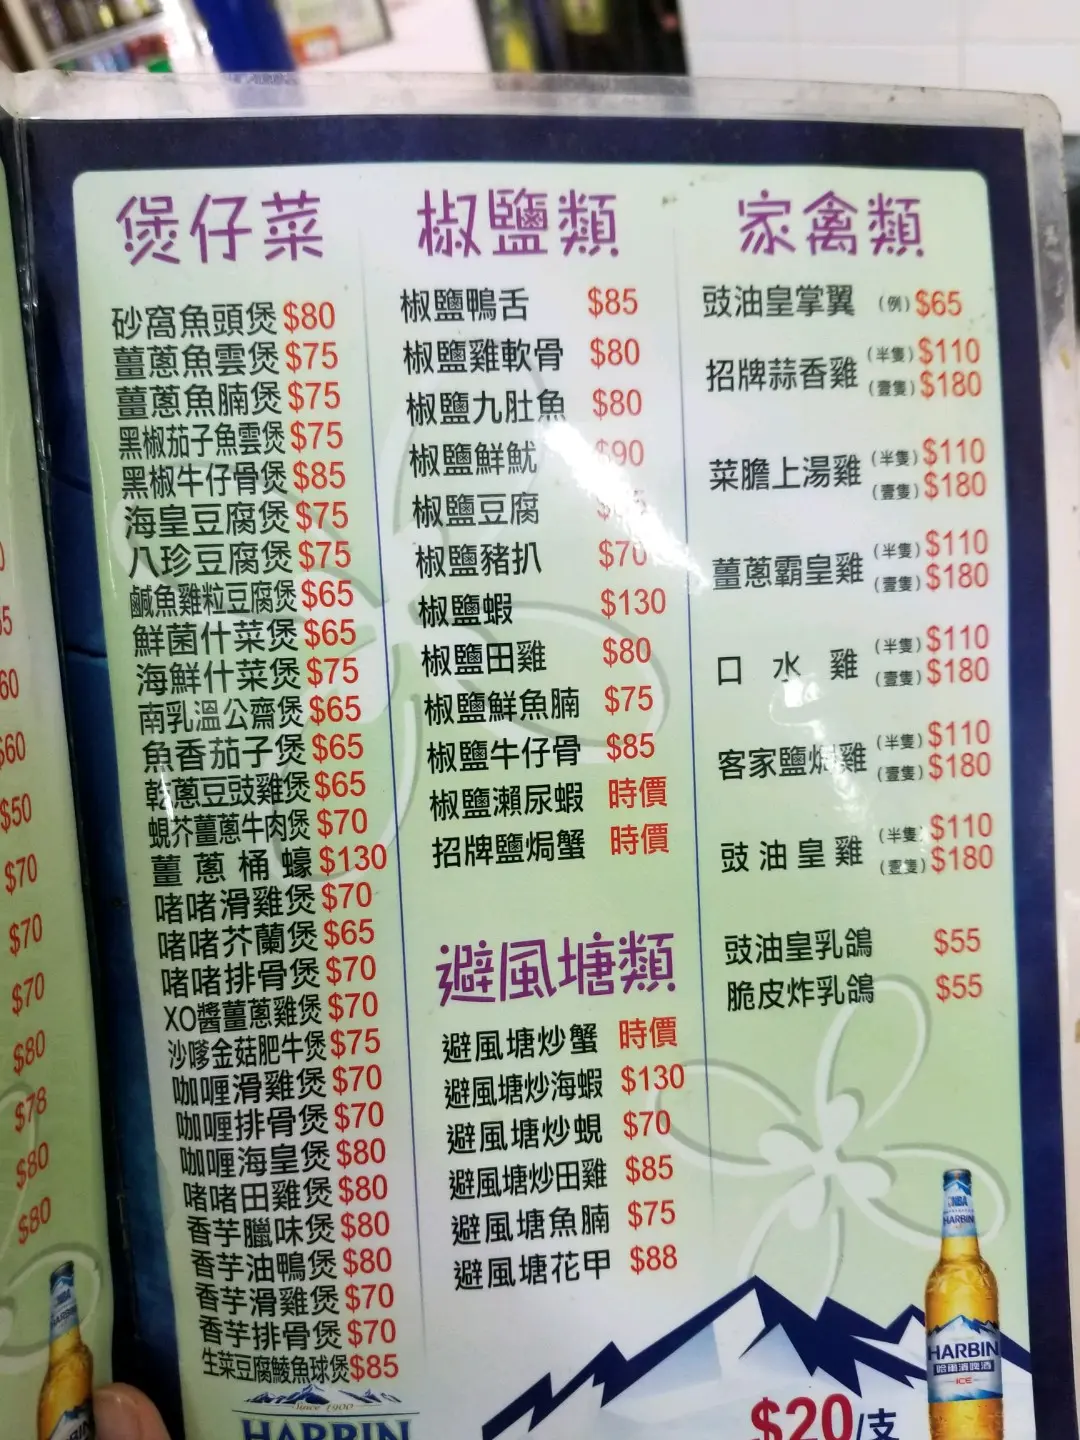 煲仔菜
砂窩魚頭煲 $80
薑蔥魚雲煲 $75
薑蔥魚腩煲 $75
黑椒茄子魚雲煲 $75
黑椒牛仔骨煲 $85
海皇豆腐煲 $75
八珍豆腐煲 $75
鹹魚雞粒豆腐煲 $65
鮮菌什菜煲 $65
海鮮什菜煲 $75
南乳溫公齋煲 $65
魚香茄子煲 $65
乾蔥豆豉雞煲 $65
蜆芥薑蔥牛肉煲 $70
薑蔥桶蠔 $130
啫啫滑雞煲 $70
啫啫芥蘭煲 $65
啫啫排骨煲 $70
XO醬薑蔥雞煲 $70
沙嗲金菇肥牛煲 $75
咖喱滑雞煲 $70
咖喱排骨煲 $70
咖喱海皇煲 $80
啫啫田雞煲 $80
香芋臘味煲 $80
香芋油鴨煲 $80
香芋滑雞煲 $70
香芋排骨煲 $70
生菜豆腐鯪魚球煲 $85
Since 1900
HARBIN
椒鹽類
椒鹽鴨舌 $85
椒鹽雞軟骨 $80
椒鹽九肚魚 $80
椒鹽鮮魷 $90
椒鹽豆腐
椒鹽豬扒 $70
椒鹽蝦 $130
椒鹽田雞 $80
椒鹽鮮魚腩 $75
椒鹽牛仔骨 $85
椒鹽瀨尿蝦 時價
招牌鹽焗蟹 時價
避風塘類
避風塘炒蟹 時價
避風塘炒海蝦 $130
避風塘炒蜆 $70
避風塘炒田雞 $85
避風塘魚腩 $75
避風塘花甲 $88
家禽類
豉油皇掌翼 (例) $65
招牌蒜香雞 (半隻) $110
(壹隻) $180
菜膽上湯雞 (半隻) $110
(壹隻) $180
薑蔥霸皇雞 (半隻) $110
(壹隻) $180
口水雞 (半隻) $110
(壹隻) $180
客家鹽焗雞 (半隻) $110
(壹隻) $180
豉油皇雞 (半隻) $110
(壹隻) $180
豉油皇乳鴿 $55
脆皮炸乳鴿 $55
NBA
HARBIN
HARBIN
哈爾濱啤酒
ICE
$20/支
$60
$50
$70
$70
$70
$80
$78
$80
$80